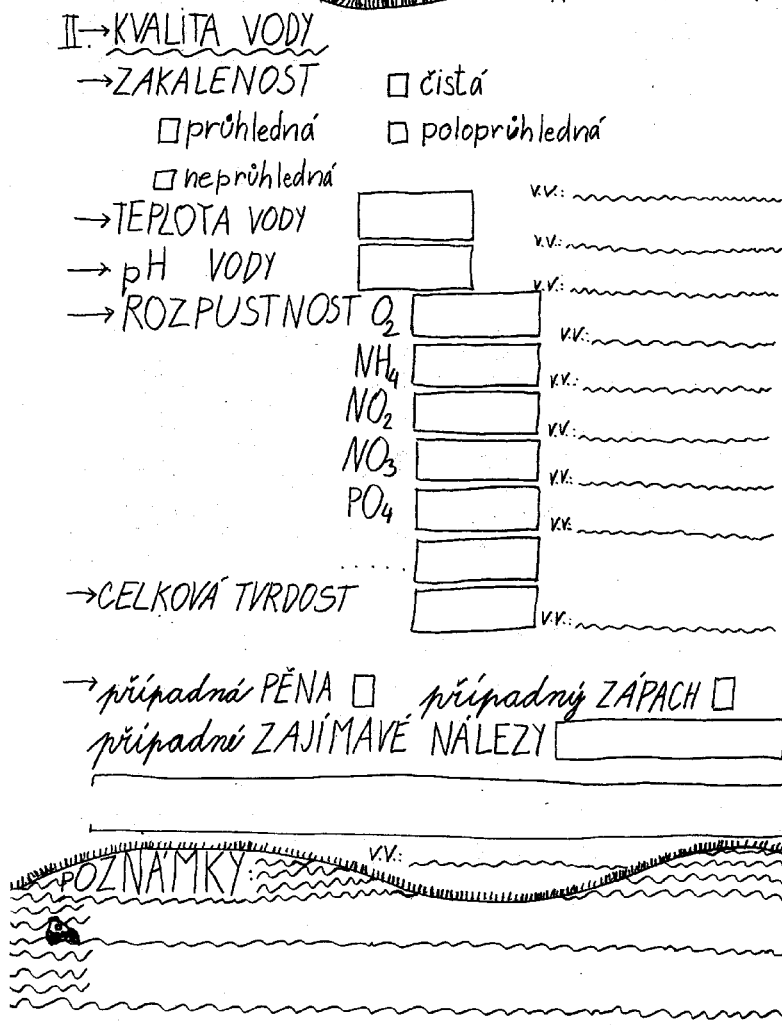 II. → KVALITA VODY
→ ZAKALENOST □ čistá
□ průhledná □ poloprůhledná
□ neprůhledná
V.V.:
→ TEPLOTA VODY
V.V.:
→ pH VODY
V.V.:
→ ROZPUSTNOST O2
V.V.:
NH4
V.V.:
NO2
V.V.:
NO3
V.V.:
PO4
V.V.:
.....
→ CELKOVÁ TVRDOST
V.V.:
→ případná PĚNA □ případný ZÁPACH □
případné ZAJÍMAVÉ NÁLEZY
V.V.:
POZNÁMKY: